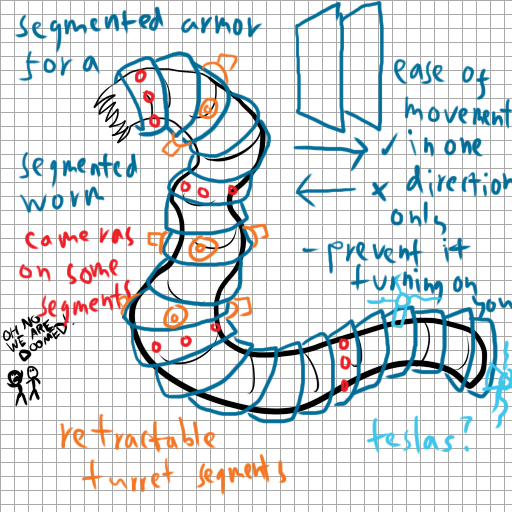 segmented armor
for a
segmented
worm
cameras
on some
segments
OH NO
WE ARE
DOOMED!
ease of
movement
✓ in one
x direction
only
- prevent it
turning on
you
retractable
turret segments
teslas?